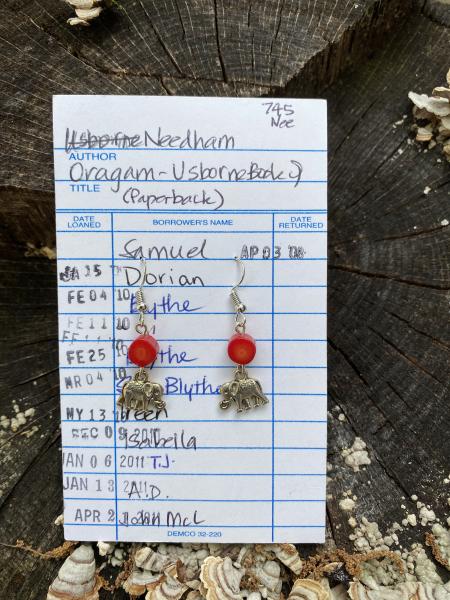 745
Nee
Usborne Needham
AUTHOR
Oragam - Usborne Book of
TITLE
(Paperback)
DATE LOANED
BORROWER'S NAME
DATE RETURNED
Samuel AP 03 '08
JA 15 Dorian
FE 04 10 Blythe
FE 11 10
FE 11
FE 25 10 Blythe
MR 04 10 Blythe
MY 13
DEC 0 9 2010 Isabella
JAN 0 6 2011 T.J.
JAN 1 3 2011 A.D.
APR 2 2011 John McL
DEMCO 32-220